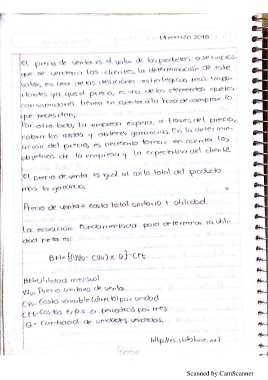 14 marzo 2018
El precio de venta es el valor de los productos o servicios
que se venden a los clientes, la determinación de este
valor, es una de las decisiones estratégicas más impor-
tantes ya que el precio, es uno de los elementos que los
consumidores tienen en cuenta a la hora de comprar lo
que necesitan,
Por otro lado, la empresa espera, a través del precio,
cubrir los costos y obtener ganancias. En la determin-
ación del precio, es necesario tomar en cuenta los
objetivos de la empresa y la expectativa del cliente
El precio de venta es igual al costo total del producto
más la ganancia.
Precio de venta = costo total unitario + utilidad.
La ecuación fundamental para determinar la utili-
dad neta es:
BN=[(Vu - Cvu) x Q]-CFt
BN=Utilidad mensual
Vu= Precio unitario de venta
Cvu= Costo variable (directo) por unidad
CFt= Costos fijos o periódicos por mes
Q = Cantidad de unidades vendidas.
http://es.slideshare.net
Scanned by CamScanner